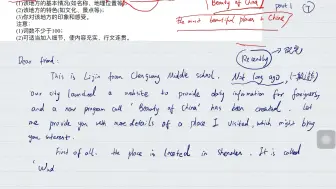 (1)该地方的基本情况(如名称、地理位置等)
(2)该地方的特色(如文化、景点等);
(3)你对该地方的印象和感受。
注意:
(1)词数不少于100;
(2)可适当加入细节,使内容充实、行文连贯。
Beauty of China
part 1
the most beautiful places in China
Recently
Dear friend:
This is Lijin from Chenguang Middle school. Not long ago,
our city launched a website to provide daily information for foreigners,
and a new program call "Beauty of China" has been created. Let
me provide you with more details of a place I visited, which might bring
you interest.
First of all, the place is located in Shenzhen. It is called